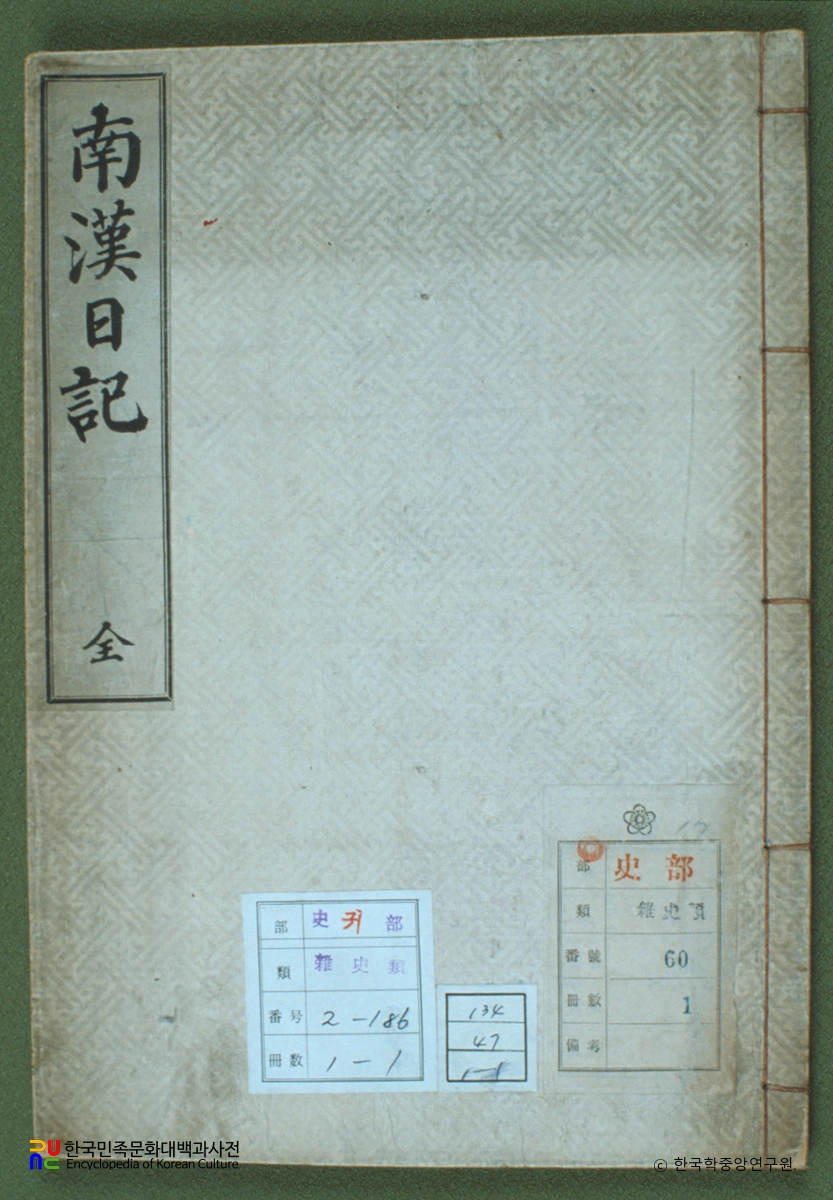 南漢日記
全
部 史部
類 雜史類
番號 60
冊數 1
備考
部 史 귀 部
類 雜史類
番号 2-186
冊数 1-1
134
47
1-1
한국민족문화대백과사전
Encyclopedia of Korean Culture
© 한국학중앙연구원